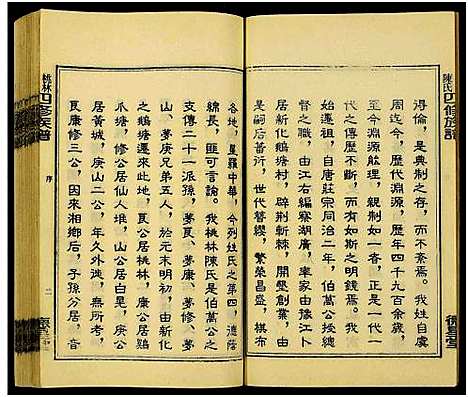 陳氏四修族譜
得倫，是典制之存，而不紊焉。我姓自虞
周迄今，歷代淵源，歷年四千九百余歲，
至今淵源能理，親制如一者，正是一代一
代之傳歷不斷，而有如斯之明德焉。我
其始祖，自唐莊宗同治二年，伯萬公其
督之職，由江右編察湖廣，率家由豫江卜
居新化鵝塘村，辟荆斬棘，開墾創業，由
是嗣后蕃衍，世代簪纓，繁荣昌盛，棋布
德星堂
各地，星羅中華，今列姓氏之第四，德蔭
綿長，匪可言論。我桃林陳氏是伯萬公之
支傳二十一派孫，夢艮、夢康、夢修、夢
山、夢庚兄弟五人，於元末明初，由新化
之鵝塘遷來此地，艮公居桃林，康公居鷄
爪塘，修公居仙人堆，山公居白旱，庚公
居黃城，庚山二公，年久外遷，無所考，
艮康修三公，因來相鄉后，子孫分居，音
桃林四修族譜
序
二
德星堂